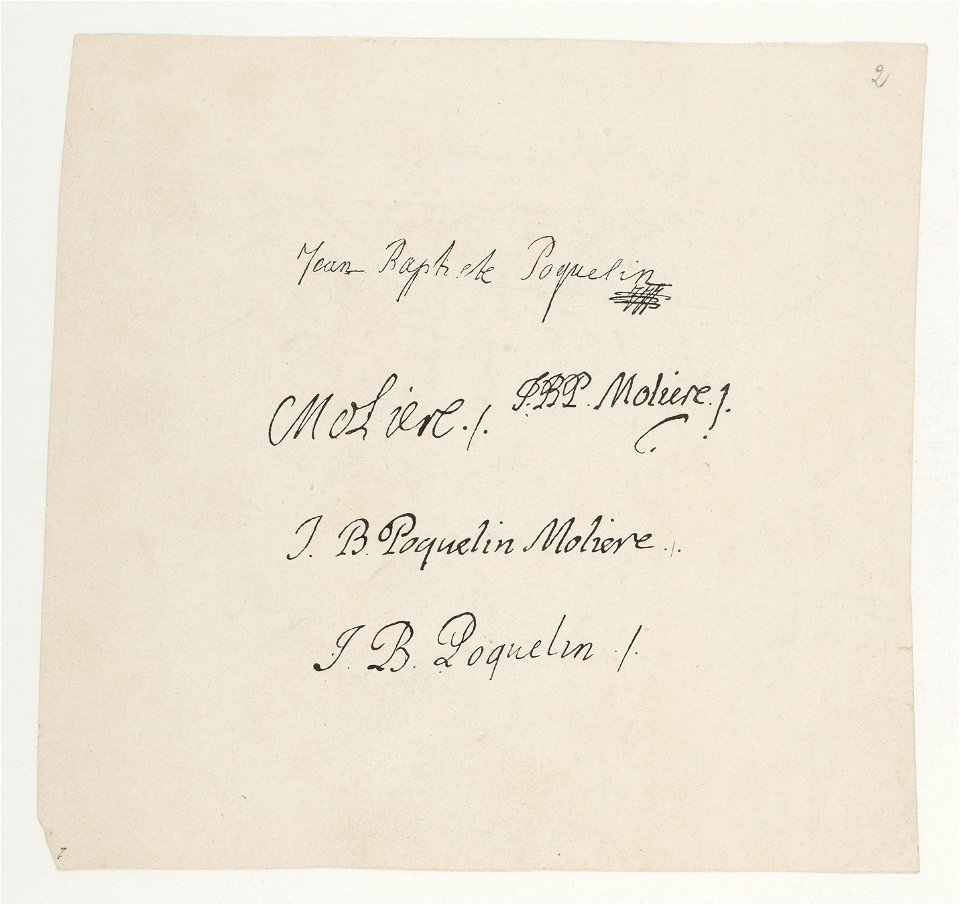 2
Jean Baptiste Poquelin
Moliere./. J.B.P. Moliere./.
J. B. Poquelin Moliere./.
J. B. Poquelin ./.